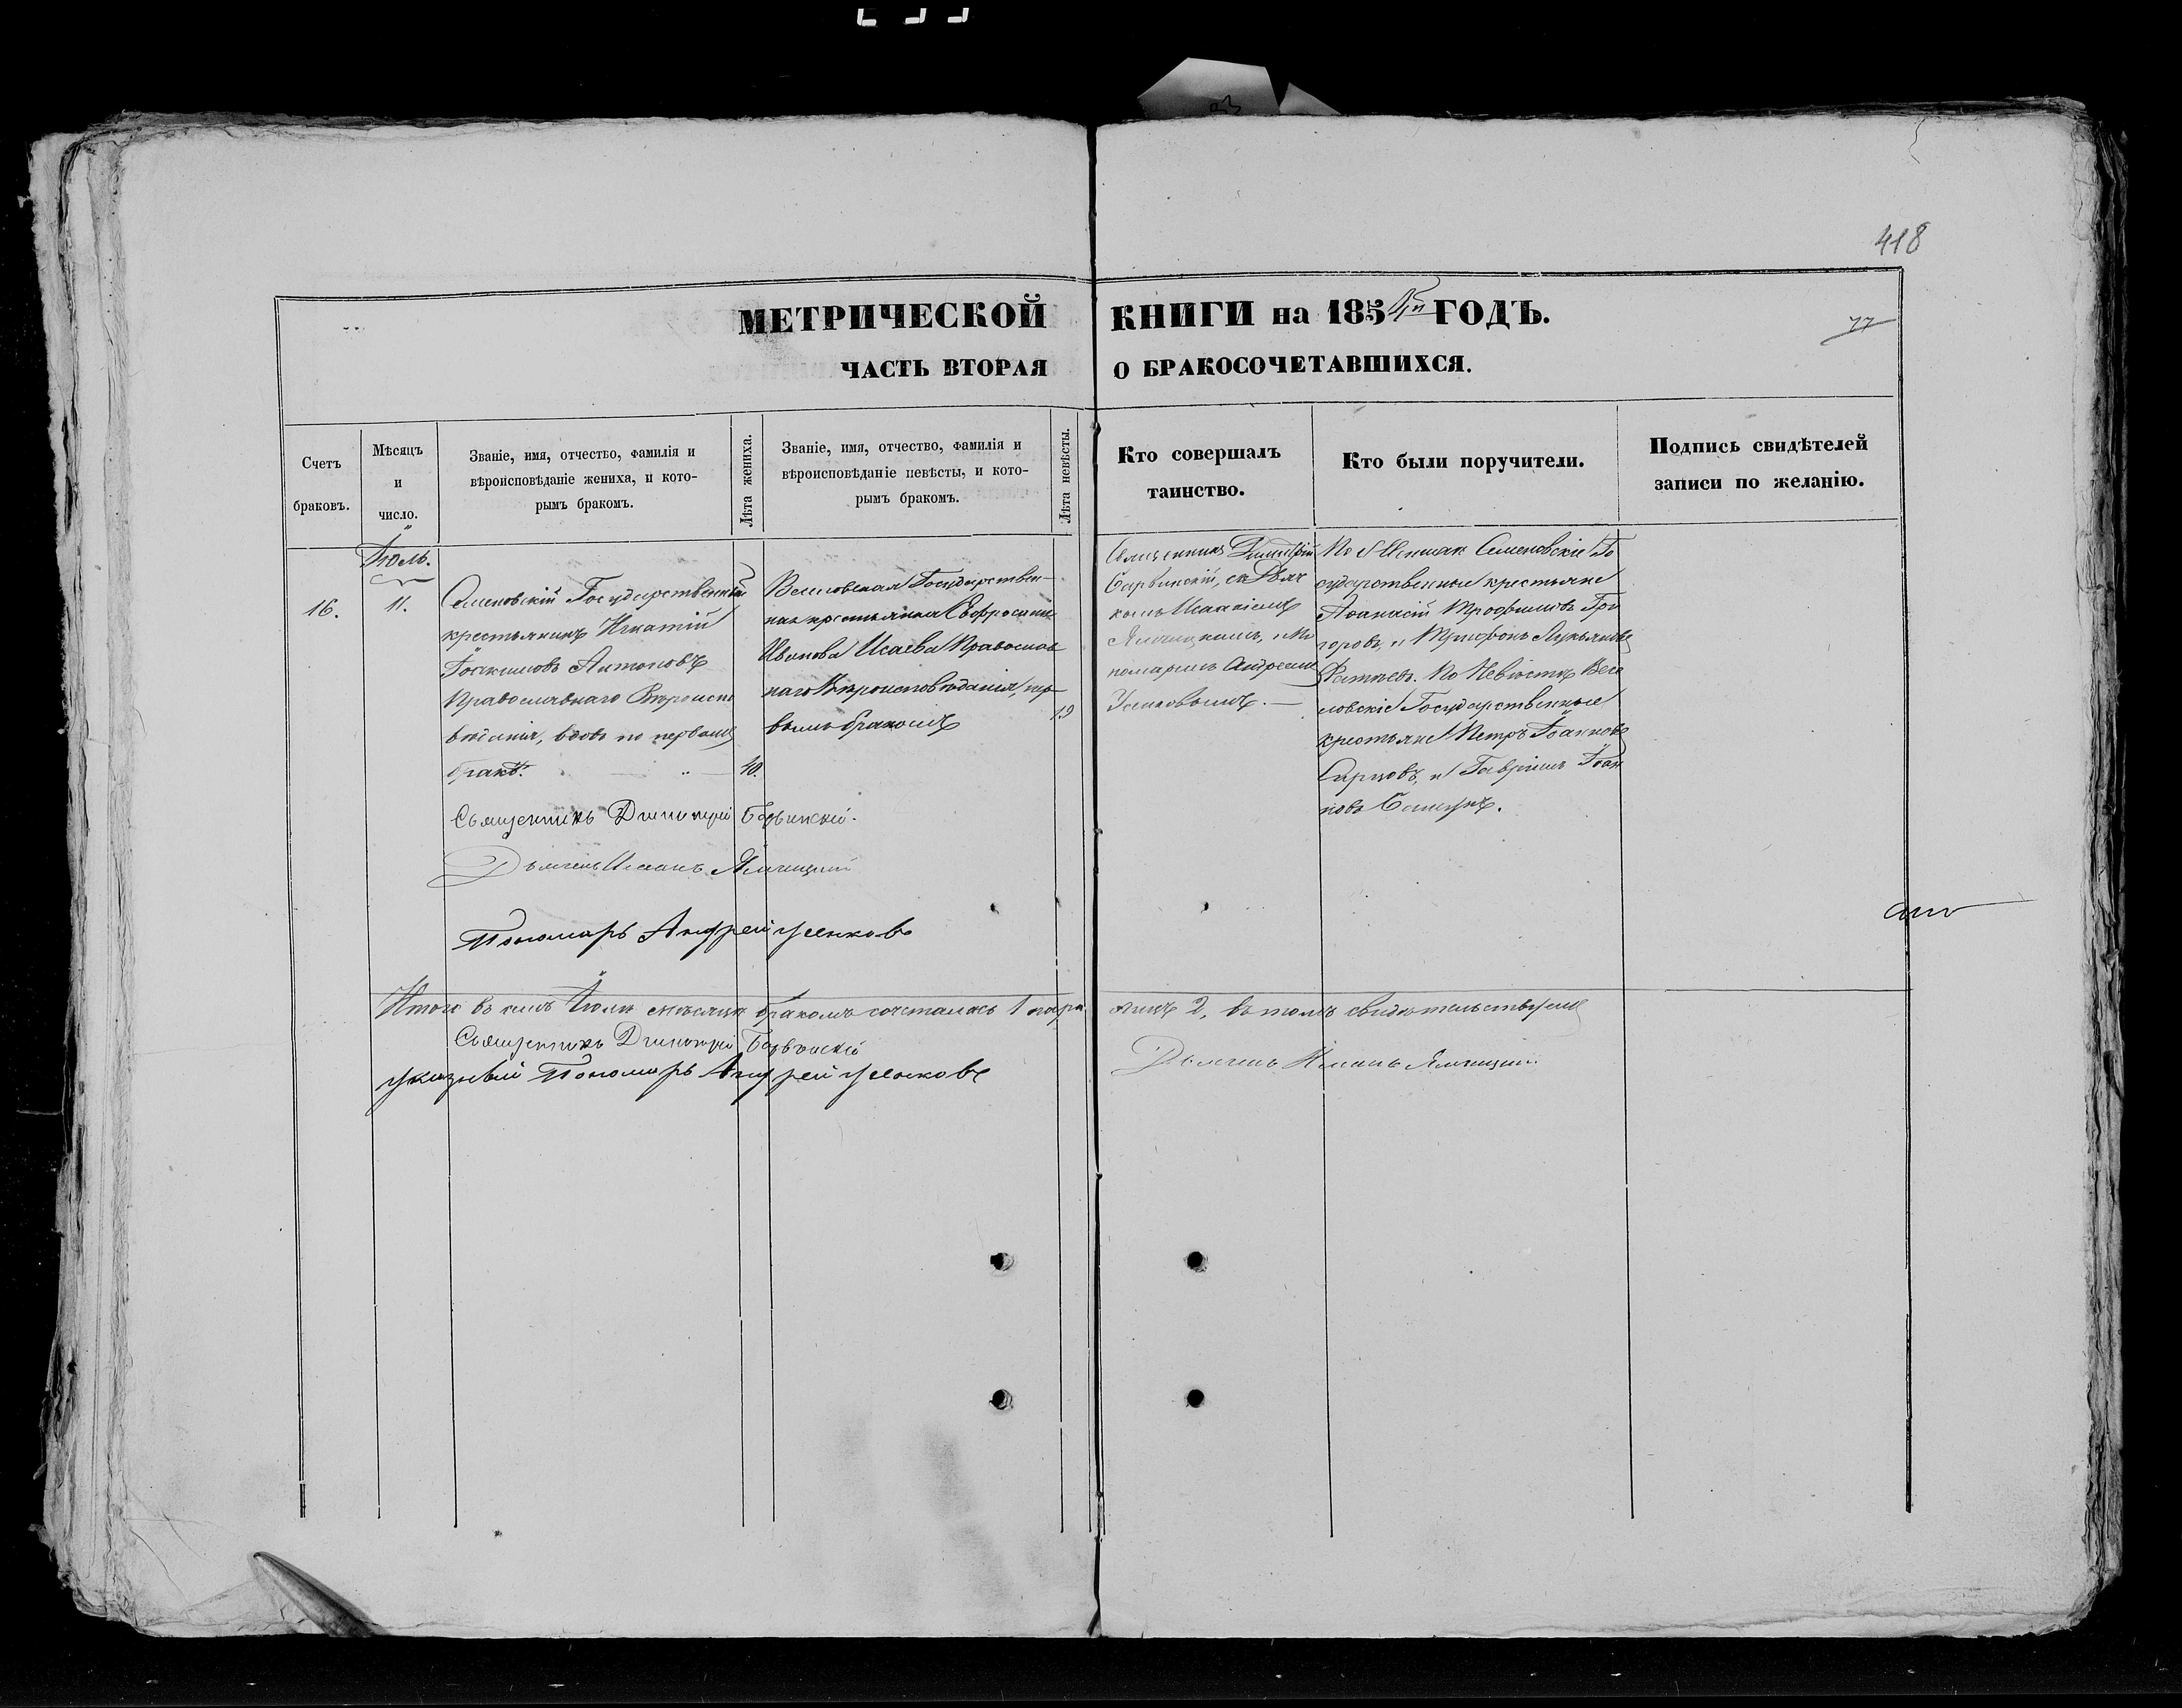 418
МЕТРИЧЕСКОЙ КНИГИ на 1854й ГОДЪ.
77
ЧАСТЬ ВТОРАЯ О БРАКОСОЧЕТАВШИХСЯ.
Счетъ
браковъ.
Мѣсяцъ
и
число.
Званіе, имя, отчество, фамилія и
вѣроисповѣданіе жениха, и кото-
рымъ бракомъ.
Лѣта жениха.
Званіе, имя, отчество, фамилія и
вѣроисповѣданіе невѣсты, и кото-
рымъ бракомъ.
Лѣта невѣсты.
Кто совершалъ
таинство.
Кто были поручители.
Подпись свидѣтелей
записи по желанію.
16.
Іюль.
11.
Семеновскій Государственный
крестьянинъ Игнатій
Іоакимовъ Антоновъ
Православнаго Вѣроиспо
вѣданія, вдовъ по первомъ
бракѣ.
40.
Веселовская Государствен-
ная крестьянка Евфросинія
Иванова Исаева Православ
наго Вѣроисповѣданія, пер-
вымъ бракомъ
19
Священникъ Димитрій
съ Дьяч
комъ
и По
номаремъ Андреемъ
Усенковымъ.
По Женихѣ Семеновскіе Го
сударственные крестьяне
Аѳанасій Трофимовъ Гри
горовъ, и Трифонъ Лукьяновъ
По Невѣстѣ Весе
ловскіе Государственные
крестьяне Петръ Іоанновъ
и Гавріилъ Іоан
новъ
Священникъ Димитрій
Дьячекъ
Пономарь Андрей Усенковъ
Итого въ семъ Іюлѣ мѣсяцѣ бракомъ сочеталась 1 пара лицъ 2, въ томъ свидѣтельствуемъ
Священникъ Димитрій
Дьячекъ
Указный Пономарь Андрей Усенковъ